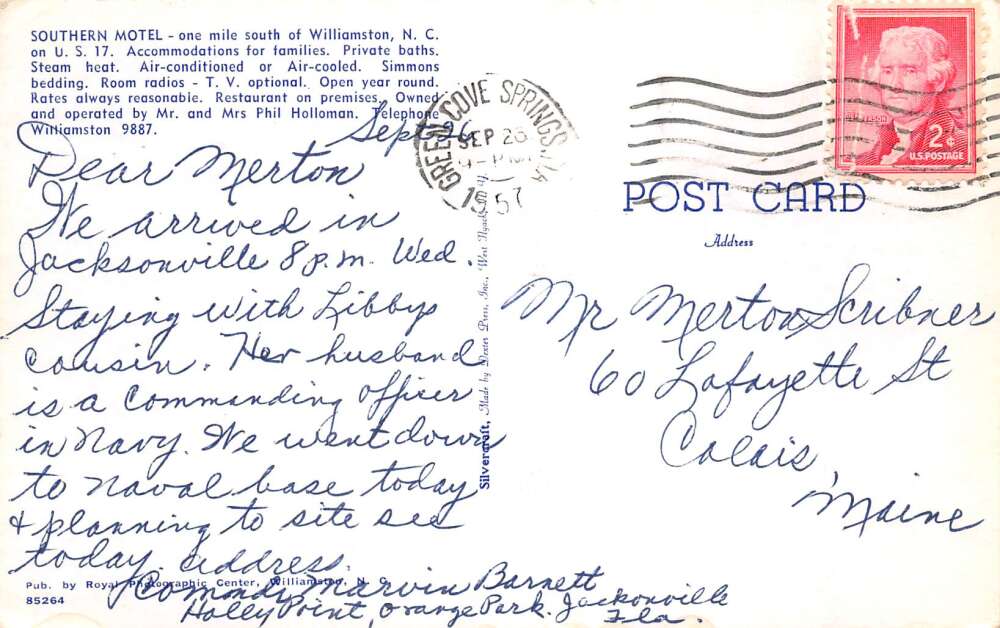 SOUTHERN MOTEL - one mile south of Williamston, N. C.
on U. S. 17. Accommodations for families. Private baths.
Steam heat. Air-conditioned or Air-cooled. Simmons
bedding. Room radios - T. V. optional. Open year round.
Rates always reasonable. Restaurant on premises. Owned
and operated by Mr. and Mrs Phil Holloman. Telephone
Williamston 9887.
Sept 26
Dear Merton
We arrived in
Jacksonville 8 p.m. Wed.
Staying with Libbys
cousin. Her husband
is a Commanding Officer
in Navy. We went down
to naval base today
& planning to site see
today. address.
Comondr Marvin Barnett
Holley Point, Orange Park. Jacksonville
Fla.
Pub. by Royal Photographic Center, Williamston, N. C.
85264
Silvercraft, Made by Dexter Press, Inc., West Nyack, N. Y.
GREEN COVE SPRINGS, FLA
SEP 26
1957
JEFFERSON
2¢
U.S. POSTAGE
POST CARD
Address
Mr Merton Scribner
60 Lafayette St
Calais,
Maine